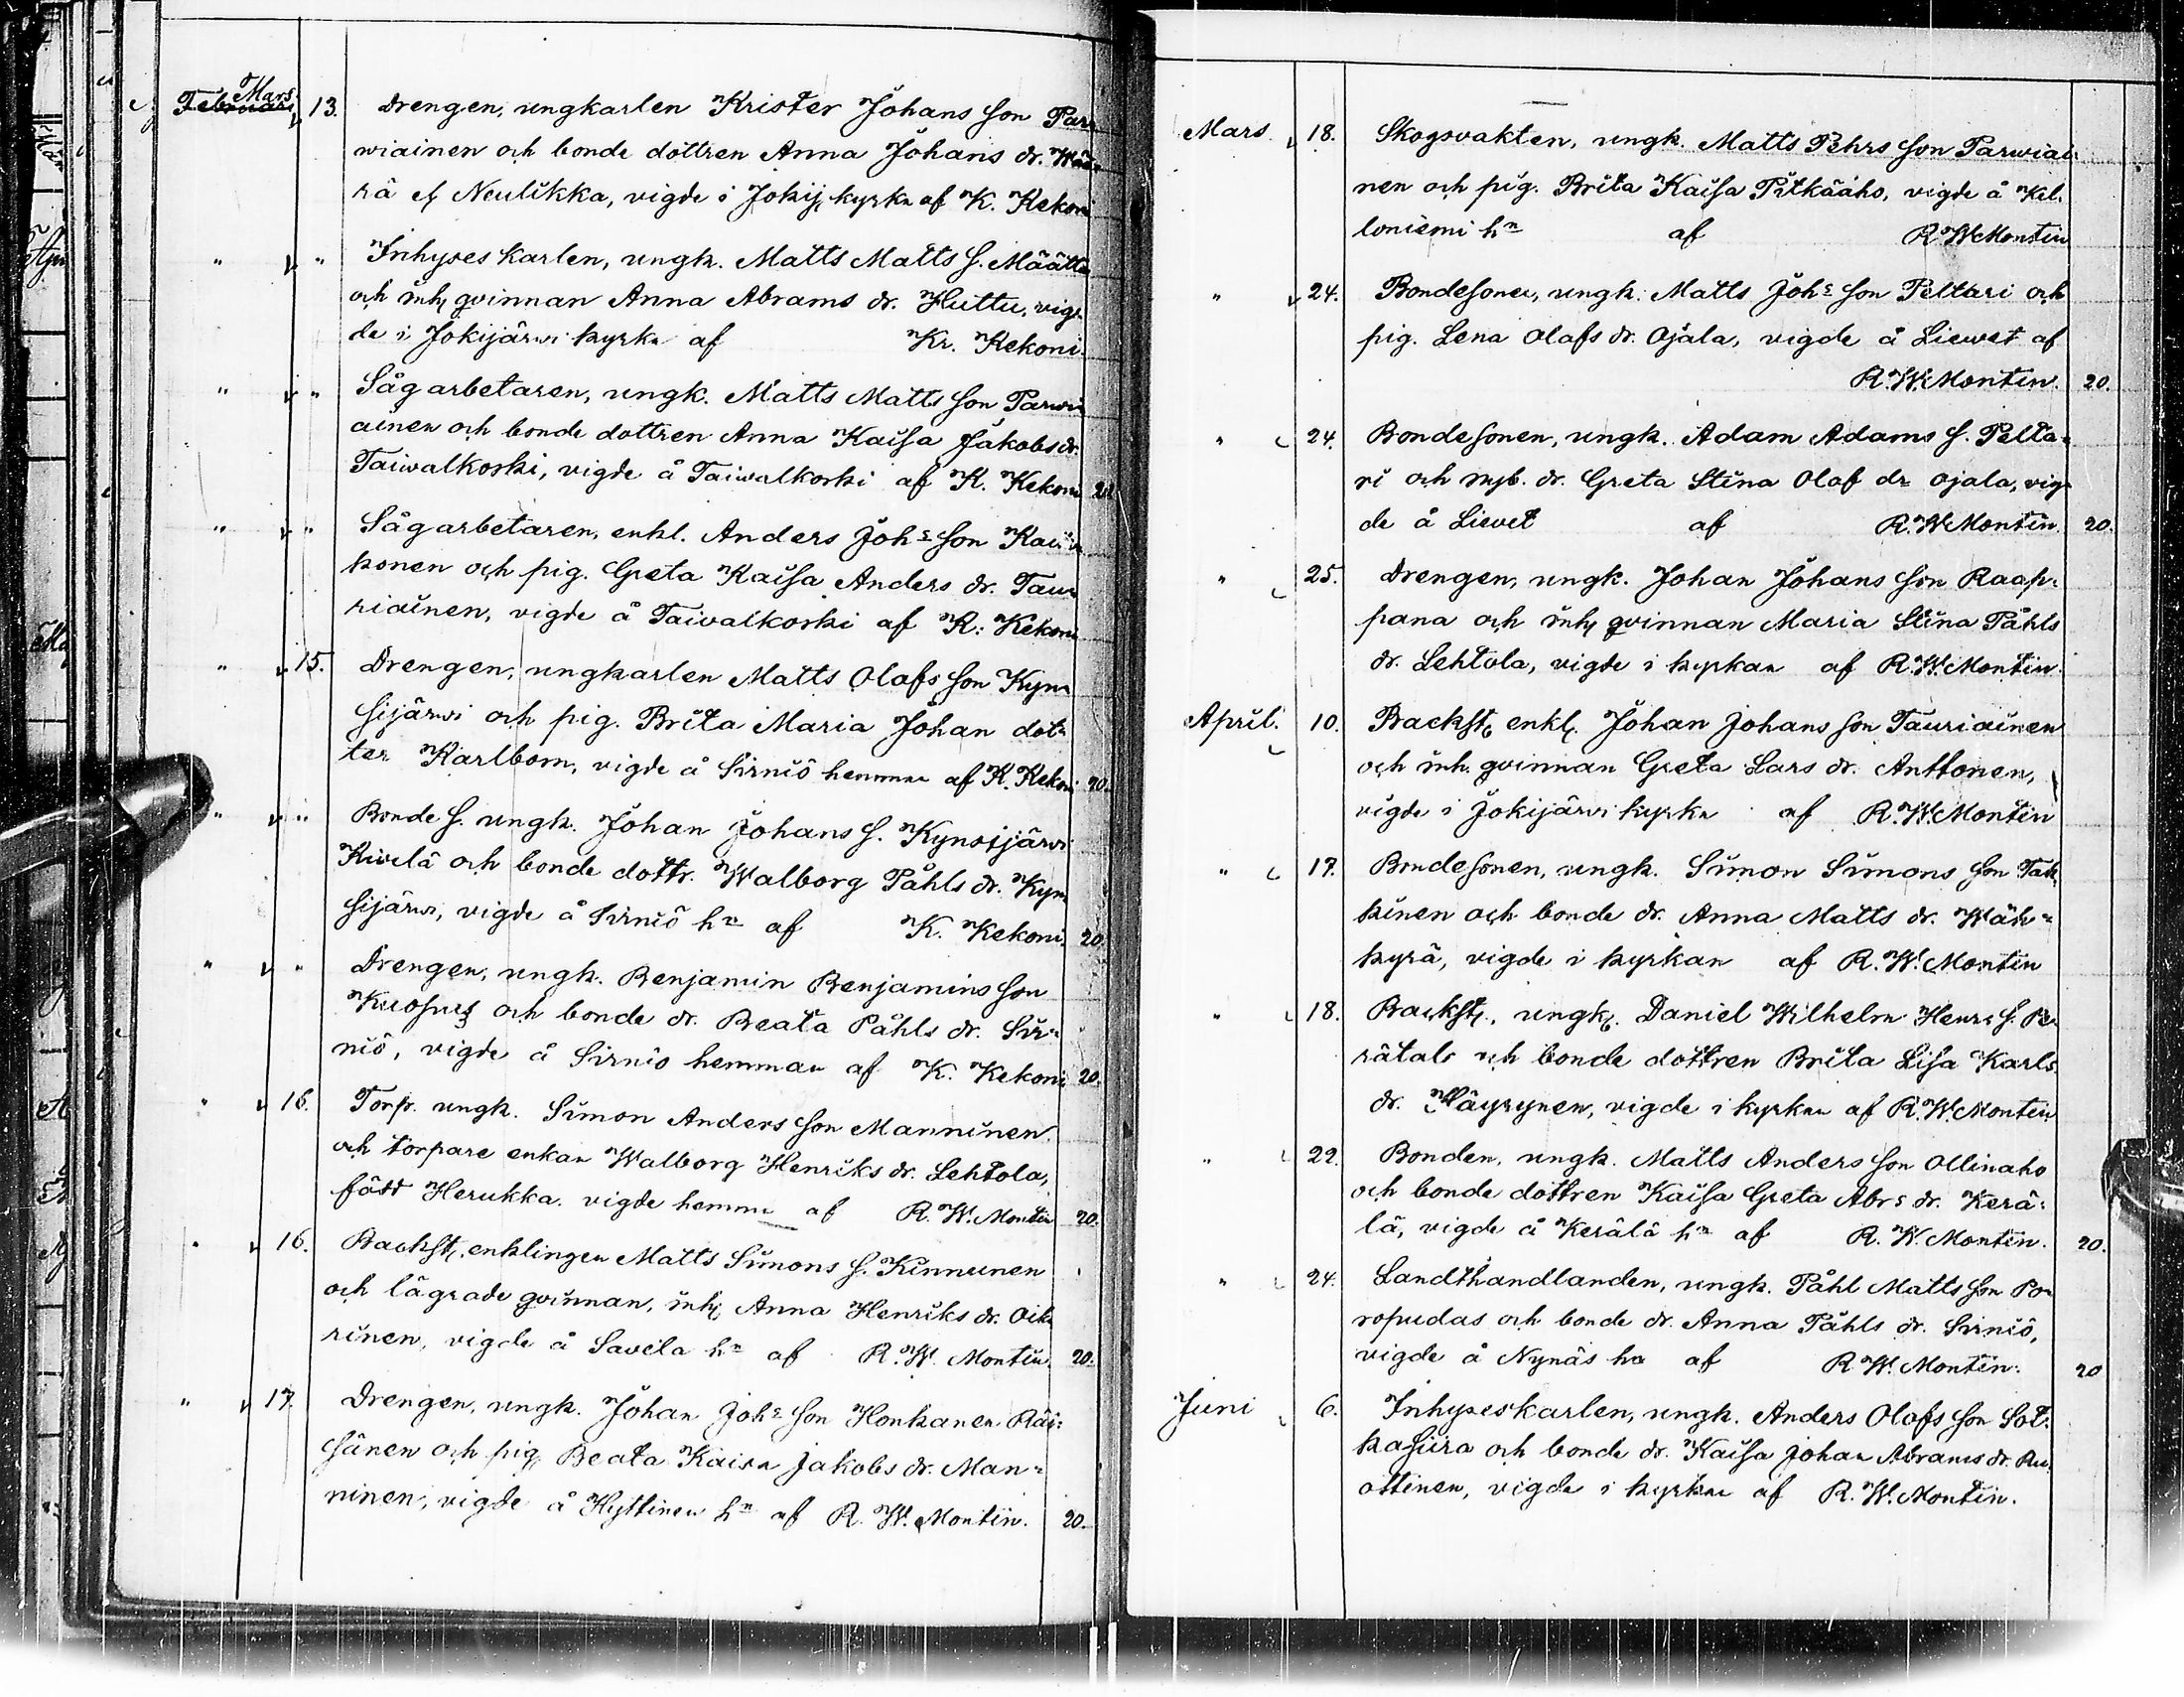 Februari Mars 13. Drengen, ungkarlen Krister Johans son Par-
wiainen och bonde dottren Anna Johans dr.
rä ej Neulikka, vigde i Jokij. kyrka af K. Kekoni
" " Inhyses karlen, ungk. Matts Matts s. Määttä
och inh. qvinnan Anna Abrams dr. Huttu, vig-
de i Jokijärwi kyrka af Kr. Kekoni.
" " Sågarbetaren, ungk. Matts Matts son Parwi-
ainen och bonde dottren Anna Kaisa Jakobs dr.
Taiwalkoski, vigde å Taiwalkoski af K. Kekoni 20.
" " Sågarbetaren, enkl. Anders Johs son
konen och pig. Greta Kaisa Anders dr. Tau-
riainen, vigde å Taivalkoski af K. Kekoni
" 15. Drengen, ungkarlen Matts Olofs son Kyn-
sijärwi och pig. Brita Maria Johan dot-
ter Karlbom, vigde å Sirniö hemman af K. Kekoni 20.
" " Bonde s. ungk. Johan Johans s. Kynsijärwi
Kivelä och bonde dottr. Walborg Påhls dr. Kyn-
sijärwi, vigde å Sirniö hn af K. Kekoni. 20.
" " Drengen, ungk. Benjamin Benjamins son
Kuosus och bonde dr. Beata Påhls dr. Sir-
niö, vigde å Sirniö hemman af K. Kekoni 20.
" 16. Torp. ungk. Simon Anders son Manninen
och torpare enkan Walborg Henriks dr. Lehtola,
född Herukka. vigde hemma af R. W. Montin 20.
" 16. Backst. enklingen Matts Simons s. Kinnunen
och lägrade qvinnan, inh. Anna Henriks dr. Oik-
rinen, vigde å Savela hn af R. W. Montin. 20.
" 17. Drengen, ungk. Johan Johs son Honkanen Räi-
sänen och pig. Beata Kaisa Jakobs dr. Man-
ninen, vigde å Hyttinen hn af R. W. Montin. 20.
Mars 18. Skogsvakten, ungk. Matts Pehrs son Parwiai-
nen och pig. Brita Kaisa Pitkäaho, vigde å Kel-
loniemi hn af R. W. Montin
" 24. Bondesonen, ungk. Matts Johs son Peltari och
pig. Lena Olafs dr. Ojala, vigde å Liewet af
R. W. Montin. 20.
" 24. Bondesonen, ungk. Adam Adams s. Pelta-
ri och nyb. dr. Greta Stina Olof dr Ojala, vig-
de å Livet af R. W. Montin. 20.
" 25. Drengen, ungk. Johan Johans son Raap-
pana och inh. qvinnan Maria Stina Påhls
dr. Lehtola, vigde i kyrkan af R. W. Montin.
April. 10. Backst. enkl. Johan Johans son Tauriainen
och inh. qvinnan Greta Lars dr. Anttonen,
vigde i Jokijärwi kyrka af R. W. Montin
" 17. Bondesonen, ungk. Simon Simons son
kinen och bonde dr. Anna Matts dr. Wäh-
kyrä, vigde i kyrkan af R. W. Montin
" 18. Backst., ungk. Daniel Wilhelm Henrs s. Pe-
rätalo och bonde dottren Brita Lisa Karls
dr. Väyrynen, vigde i kyrkan af R. W. Montin
" 22. Bonden, ungk. Matts Anders son Ollinaho
och bonde dottren Kaisa Greta Abrs dr. Kerä-
lä, vigde å Kerälä hn af R. W. Montin. 20.
" 24. Landthandlanden, ungk. Påhl Matts son Po-
ropudas och bonde dr. Anna Påhls dr. Sirniö,
vigde å Nynäs hn af R. W. Montin. 20
Juni 6. Inhyseskarlen, ungk. Anders Olofs son Sot-
kasiira och bonde dr. Kaisa Johan Abrams dr. Ru-
ottinen, vigde i kyrkan af R. W. Montin.